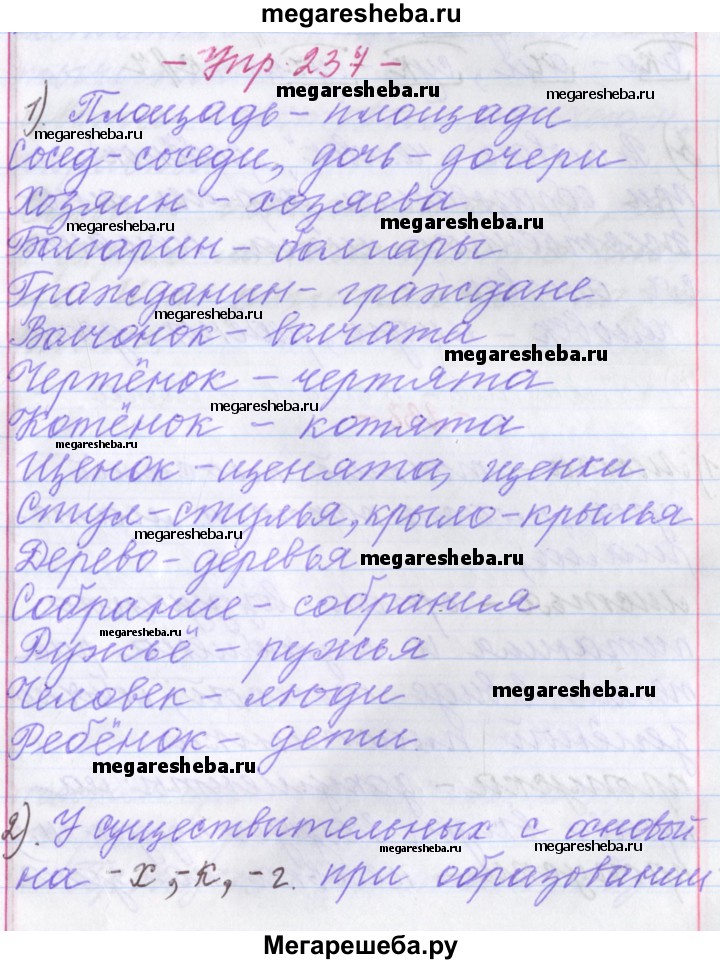 megaresheba.ru
- Упр. 237 -
megaresheba.ru
1). Площадь - площади
megaresheba.ru
megaresheba.ru
Сосед - соседи, дочь - дочери
Хозяин - хозяева
megaresheba.ru
megaresheba.ru
Болгарин - болгары
Гражданин - граждане
megaresheba.ru
Волчонок - волчата
megaresheba.ru
Чертёнок - чертята
megaresheba.ru
Котёнок - котята
megaresheba.ru
Щенок - щенята, щенки
Стул - стулья, крыло - крылья
megaresheba.ru
Дерево - деревья
megaresheba.ru
Собрание - собрания
megaresheba.ru
Ружьё - ружья
Человек - люди
megaresheba.ru
Ребёнок - дети.
megaresheba.ru
2). У существительных с основой
megaresheba.ru
megaresheba.ru
на -х, -к, -г. при образовании
Мегарешеба.ру